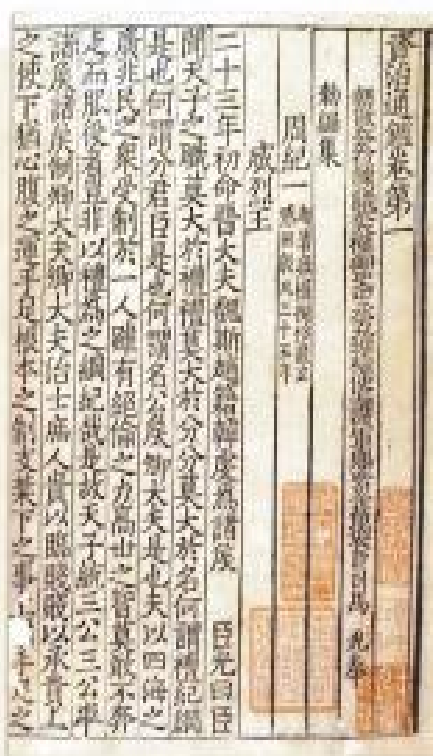 資治通鑑卷第一
護軍賜紫金魚袋臣司馬 光奉
勅編集
周紀一 起著雍攝提格盡玄
黓困敦凡三十五年
威烈王
二十三年 初命晉大夫魏斯趙籍韓虔爲諸侯 臣光曰臣
聞天子之職莫大於禮禮莫大於分分莫大於名何謂禮紀綱
是也何謂分君臣是也何謂名公侯卿大夫是也夫以四海之
廣兆民之衆受制於一人雖有絕倫之力高世之智莫敢不奔
走而服役者豈非以禮爲之綱紀哉是故天子統三公三公率
諸侯諸侯制卿大夫卿大夫治士庶人貴以臨賤賤以承貴上
之使下猶心腹之運手足根本之制支葉下之事上 手足之